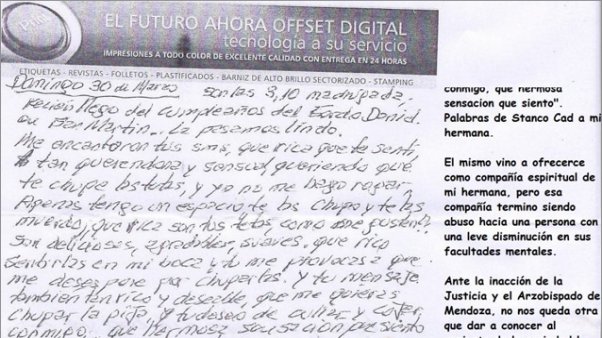 Print
EL FUTURO AHORA OFFSET DIGITAL
tecnología a su servicio
IMPRESIONES A TODO COLOR DE EXCELENTE CALIDAD CON ENTREGA EN 24 HORAS
ETIQUETAS - REVISTAS - FOLLETOS - PLASTIFICADOS - BARNIZ DE ALTO BRILLO SECTORIZADO - STAMPING
Domingo 30 de Marzo son las 3,10 madrugada,
Recién llego del cumpleaños del David
en Martin... La pasamos lindo.
Me encantaron tus sms, que rica que te sentí,
tan querendona y sensual, queriendo que
te chupe las tetas, y yo no me hago rogar,
Apenas tengo un espacio te las chupo y te las
muerdo, que rica son tus tetas, como me gustan,
son deliciosas, suaves, que rico
sentirlas en mi boca y tu me provocas a que
me desespere por chuparlas. Y tu mensaje
tambien tan rico y que me quieras
chupar la pija, y tu deseo de y
conmigo, que hermosa sensación que siento
conmigo, que hermosa
sensacion que siento".
Palabras de Stanco Cad a mi
hermana.
El mismo vino a ofrecerce
como compañía espiritual de
mi hermana, pero esa
compañía termino siendo
abuso hacia una persona con
una leve disminución en sus
facultades mentales.
Ante la inacción de la
Justicia y el Arzobispado de
Mendoza, no nos queda otra
que dar a conocer al